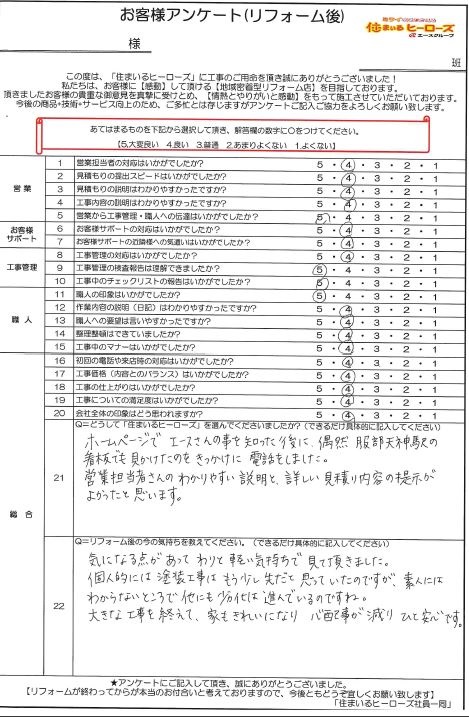 お客様アンケート(リフォーム後)
住まいるヒーローズ
エースグループ
様
班
この度は、「住まいるヒーローズ」に工事のご用命を頂き誠にありがとうございました!
私たちは、お客様に【感動】して頂ける【地域密着型リフォーム店】を目指しております。
頂きましたお客様の貴重な御意見を真摯に受けとめ、【情熱とやりがいと感動】をもって施工させていただいております。
今後の商品・技術・サービス向上のため、ご多忙とは存じますがアンケートにご協力をよろしくお願い致します。
あてはまるものを下記から選択して頂き、解答欄の数字に○をつけてください。
【5.大変良い 4.良い 3.普通 2.あまりよくない 1.よくない】
営業
1 営業担当者の対応はいかがでしたか? 5・4・3・2・1
2 見積もりの提出スピードはいかがでしたか? 5・4・3・2・1
3 見積もりの説明はわかりやすかったですか? 5・4・3・2・1
4 工事内容の説明はわかりやすかったですか? 5・4・3・2・1
5 営業から工事管理・職人への伝達はいかがでしたか? 5・4・3・2・1
お客様サポート
6 お客様サポートの対応はいかがでしたか? 5・4・3・2・1
7 お客様サポートの近隣様への気遣いはいかがでしたか? 5・4・3・2・1
工事管理
8 工事管理の対応はいかがでしたか? 5・4・3・2・1
9 工事管理の検査報告は理解できましたか? 5・4・3・2・1
10 工事中のチェックリストの報告はいかがでしたか? 5・4・3・2・1
職人
11 職人の印象はいかがでしたか? 5・4・3・2・1
12 作業内容の説明(日記)はわかりやすかったですか? 5・4・3・2・1
13 職人への要望は言いやすかったですか? 5・4・3・2・1
14 整理整頓はできていましたか? 5・4・3・2・1
15 工事中のマナーはいかがでしたか? 5・4・3・2・1
総合
16 初回の電話や来店時の対応はいかがでしたか? 5・4・3・2・1
17 工事価格(内容とのバランス)はいかがでしたか? 5・4・3・2・1
18 工事の仕上がりはいかがでしたか? 5・4・3・2・1
19 工事についての満足度はいかがでしたか? 5・4・3・2・1
20 会社全体の印象はどう思われますか? 5・4・3・2・1
21 Q=どうして「住まいるヒーローズ」を選んでくださいましたか?(できるだけ具体的に記入してください)
ホームページで エースさんの事を知った後に、偶然 服部天神駅の
看板でも見かけたのをきっかけに 電話をしました。
営業担当者さんのわかりやすい説明と、詳しい見積り内容の提示が
よかったと思います。
22 Q=リフォーム後の今の気持ちを教えてください。(できるだけ具体的に記入してください)
気になる点があって わりと軽い気持ちで 見て頂きました。
個人的には 塗装工事は もう少し先だと思っていたのですが、素人には
わからないところで他にも劣化は進んでいるのですね。
大きな工事を終えて、家もきれいになり 心配事が減り ひと安心です。
★アンケートにご記入して頂き、誠にありがとうございました。
【リフォームが終わってからが本当のお付合いと考えておりますので、今後ともどうぞ宜しくお願い致します】
「住まいるヒーローズ社員一同」